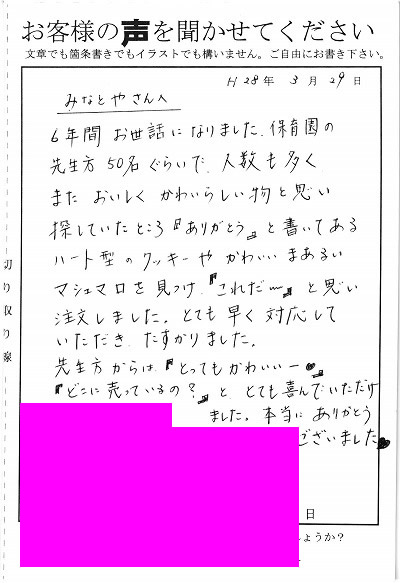 お客様の声を聞かせてください
文章でも箇条書きでもイラストでも構いません。ご自由にお書き下さい。
H28年 3月 29日
みなとやさんへ
6年間 お世話になりました。保育園の
先生方 50名ぐらいで、人数も多く
また おいしく かわいらしい物と思い
探していたところ『ありがとう』と書いてある
ハート型のクッキーや かわいい まあるい
マシュマロを見つけ、『これだ〜』と思い
注文しました。とても早く対応して
いただき、たすかりました。
先生方からは『とってもかわいいー♥』
『どこに売っているの？』と、とても喜んでいただけ
ました。本当に ありがとう
ございました♥
日
しょうか？
切り取り線